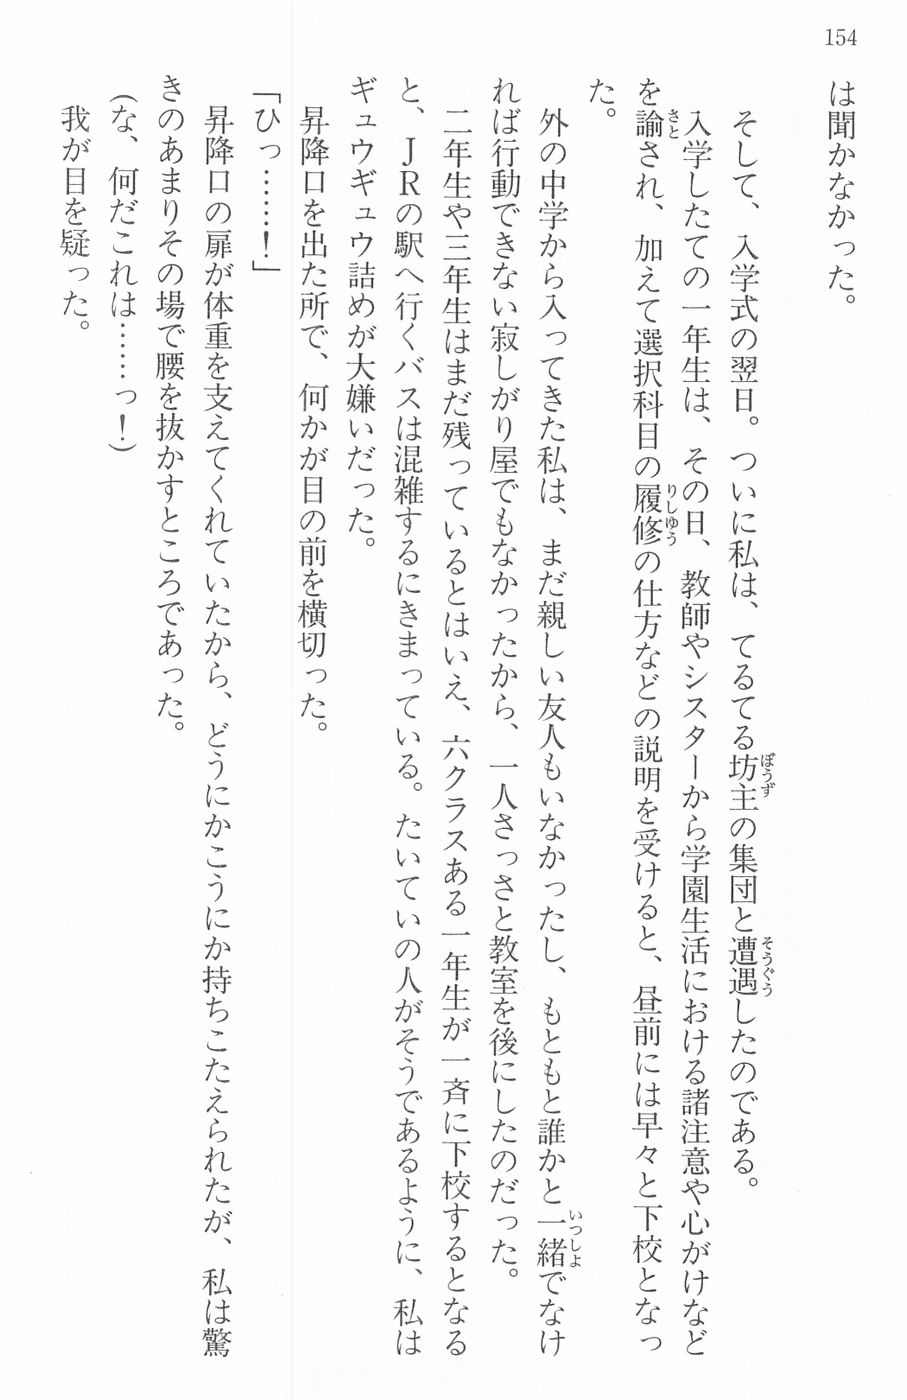 154
は聞かなかった。
そして、入学式の翌日。ついに私は、てるてる坊主の集団と遭遇したのである。
入学したての一年生は、その日、教師やシスターから学園生活における諸注意や心がけなど
を諭され、加えて選択科目の履修の仕方などの説明を受けると、昼前には早々と下校となっ
た。
外の中学から入ってきた私は、まだ親しい友人もいなかったし、もともと誰かと一緒でなけ
れば行動できない寂しがり屋でもなかったから、一人さっさと教室を後にしたのだった。
二年生や三年生はまだ残っているとはいえ、六クラスある一年生が一斉に下校するとなる
と、JRの駅へ行くバスは混雑するにきまっている。たいていの人がそうであるように、私は
ギュウギュウ詰めが大嫌いだった。
昇降口を出た所で、何かが目の前を横切った。
「ひっ……！」
昇降口の扉が体重を支えてくれていたから、どうにかこうにか持ちこたえられたが、私は驚
きのあまりその場で腰を抜かすところであった。
（な、何だこれは……っ！）
我が目を疑った。